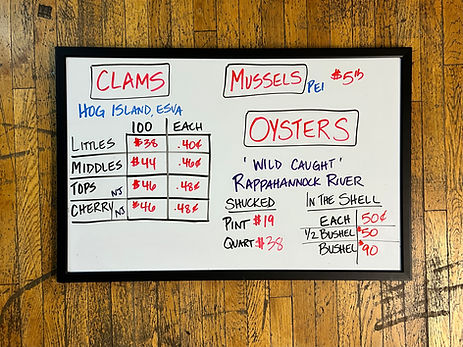 CLAMS
HOG ISLAND, ESVA
100 EACH
LITTLES $38 .40¢
MIDDLES $44 .46¢
TOPS NJ $46 .48¢
CHERRY NJ $46 .48¢
MUSSELS PEI $5 lb
OYSTERS
'WILD CAUGHT'
RAPPAHANNOCK RIVER
SHUCKED
PINT $19
QUART $38
IN THE SHELL
EACH 50¢
1/2 BUSHEL $50
BUSHEL $90